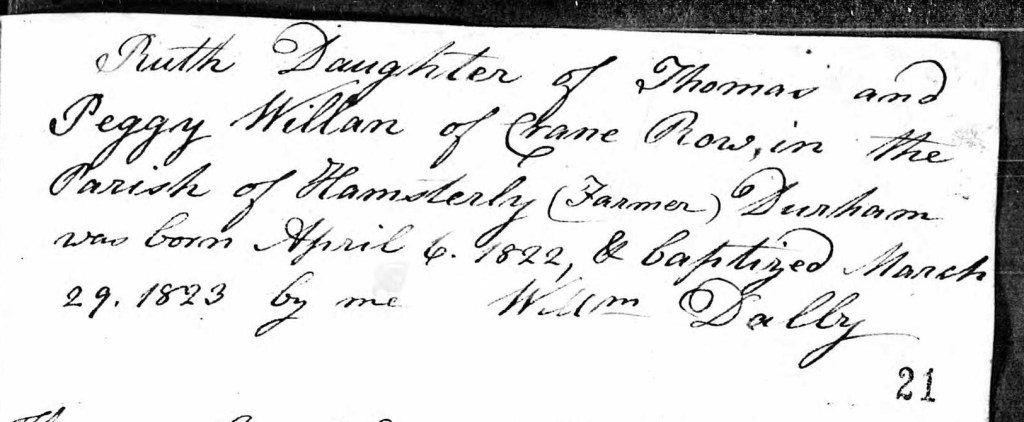 Ruth Daughter of Thomas and
Peggy Willan of Crane Row, in the
Parish of Hamsterly (Farmer) Durham
was born April 6. 1822, & baptized March
29. 1823 by me Willm Dalby
21